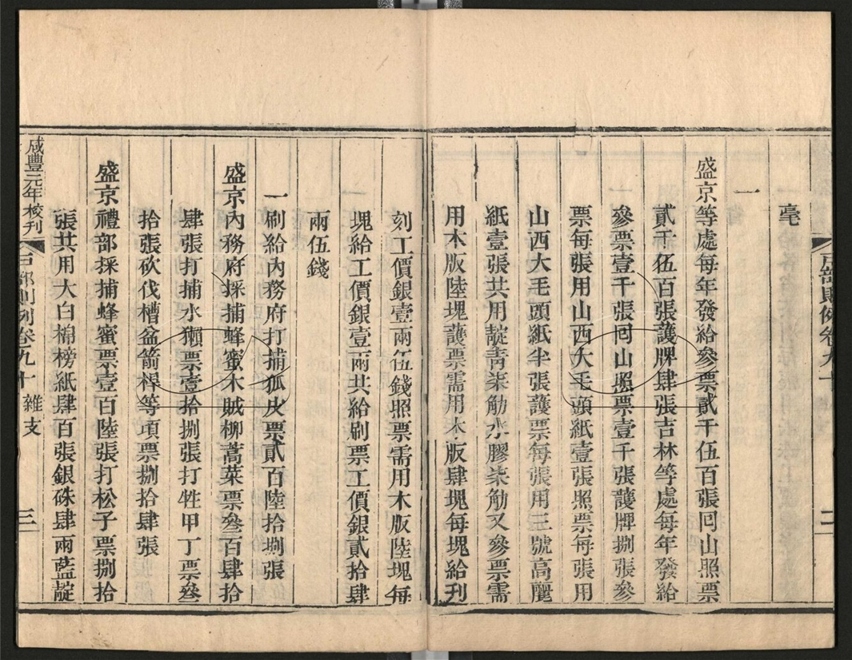 戶部則例卷九十
二
毫
一
盛京等處每年發給參票貳千伍百張回山照票
貳千伍百張護牌肆張吉林等處每年發給
參票壹千張回山照票壹千張護牌捌張參
票每張用山西大毛頭紙壹張照票每張用
山西大毛頭紙半張護票每張用三號高麗
紙壹張共用靛青柒觔水膠柒觔又參票需
用木版陸塊護票需用木版肆塊每塊給刊
刻工價銀壹兩伍錢照票需用木版陸塊每
塊給工價銀壹兩共給刷票工價銀貳拾肆
兩伍錢
一刷給內務府打捕狐皮票貳百陸拾捌張
盛京內務府採捕蜂蜜木賊柳蒿菜票叄百肆拾
肆張打捕水獺票壹拾捌張打牲甲丁票叄
拾張砍伐槽盆箭桿等項票捌拾肆張
盛京禮部採捕蜂蜜票壹百陸張打松子票捌拾
張共用大白棉榜紙肆百張銀硃肆兩藍靛
咸豐元年校刊
戶部則例卷九十
雜支
三